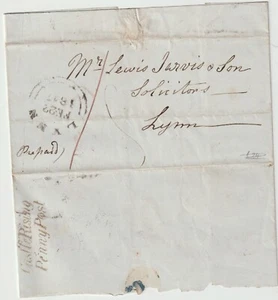 Mr. Lewis Jarvis & Son
Solicitors
Lynn
(Prepaid)
LYNN
Castle Rising
Penny Post